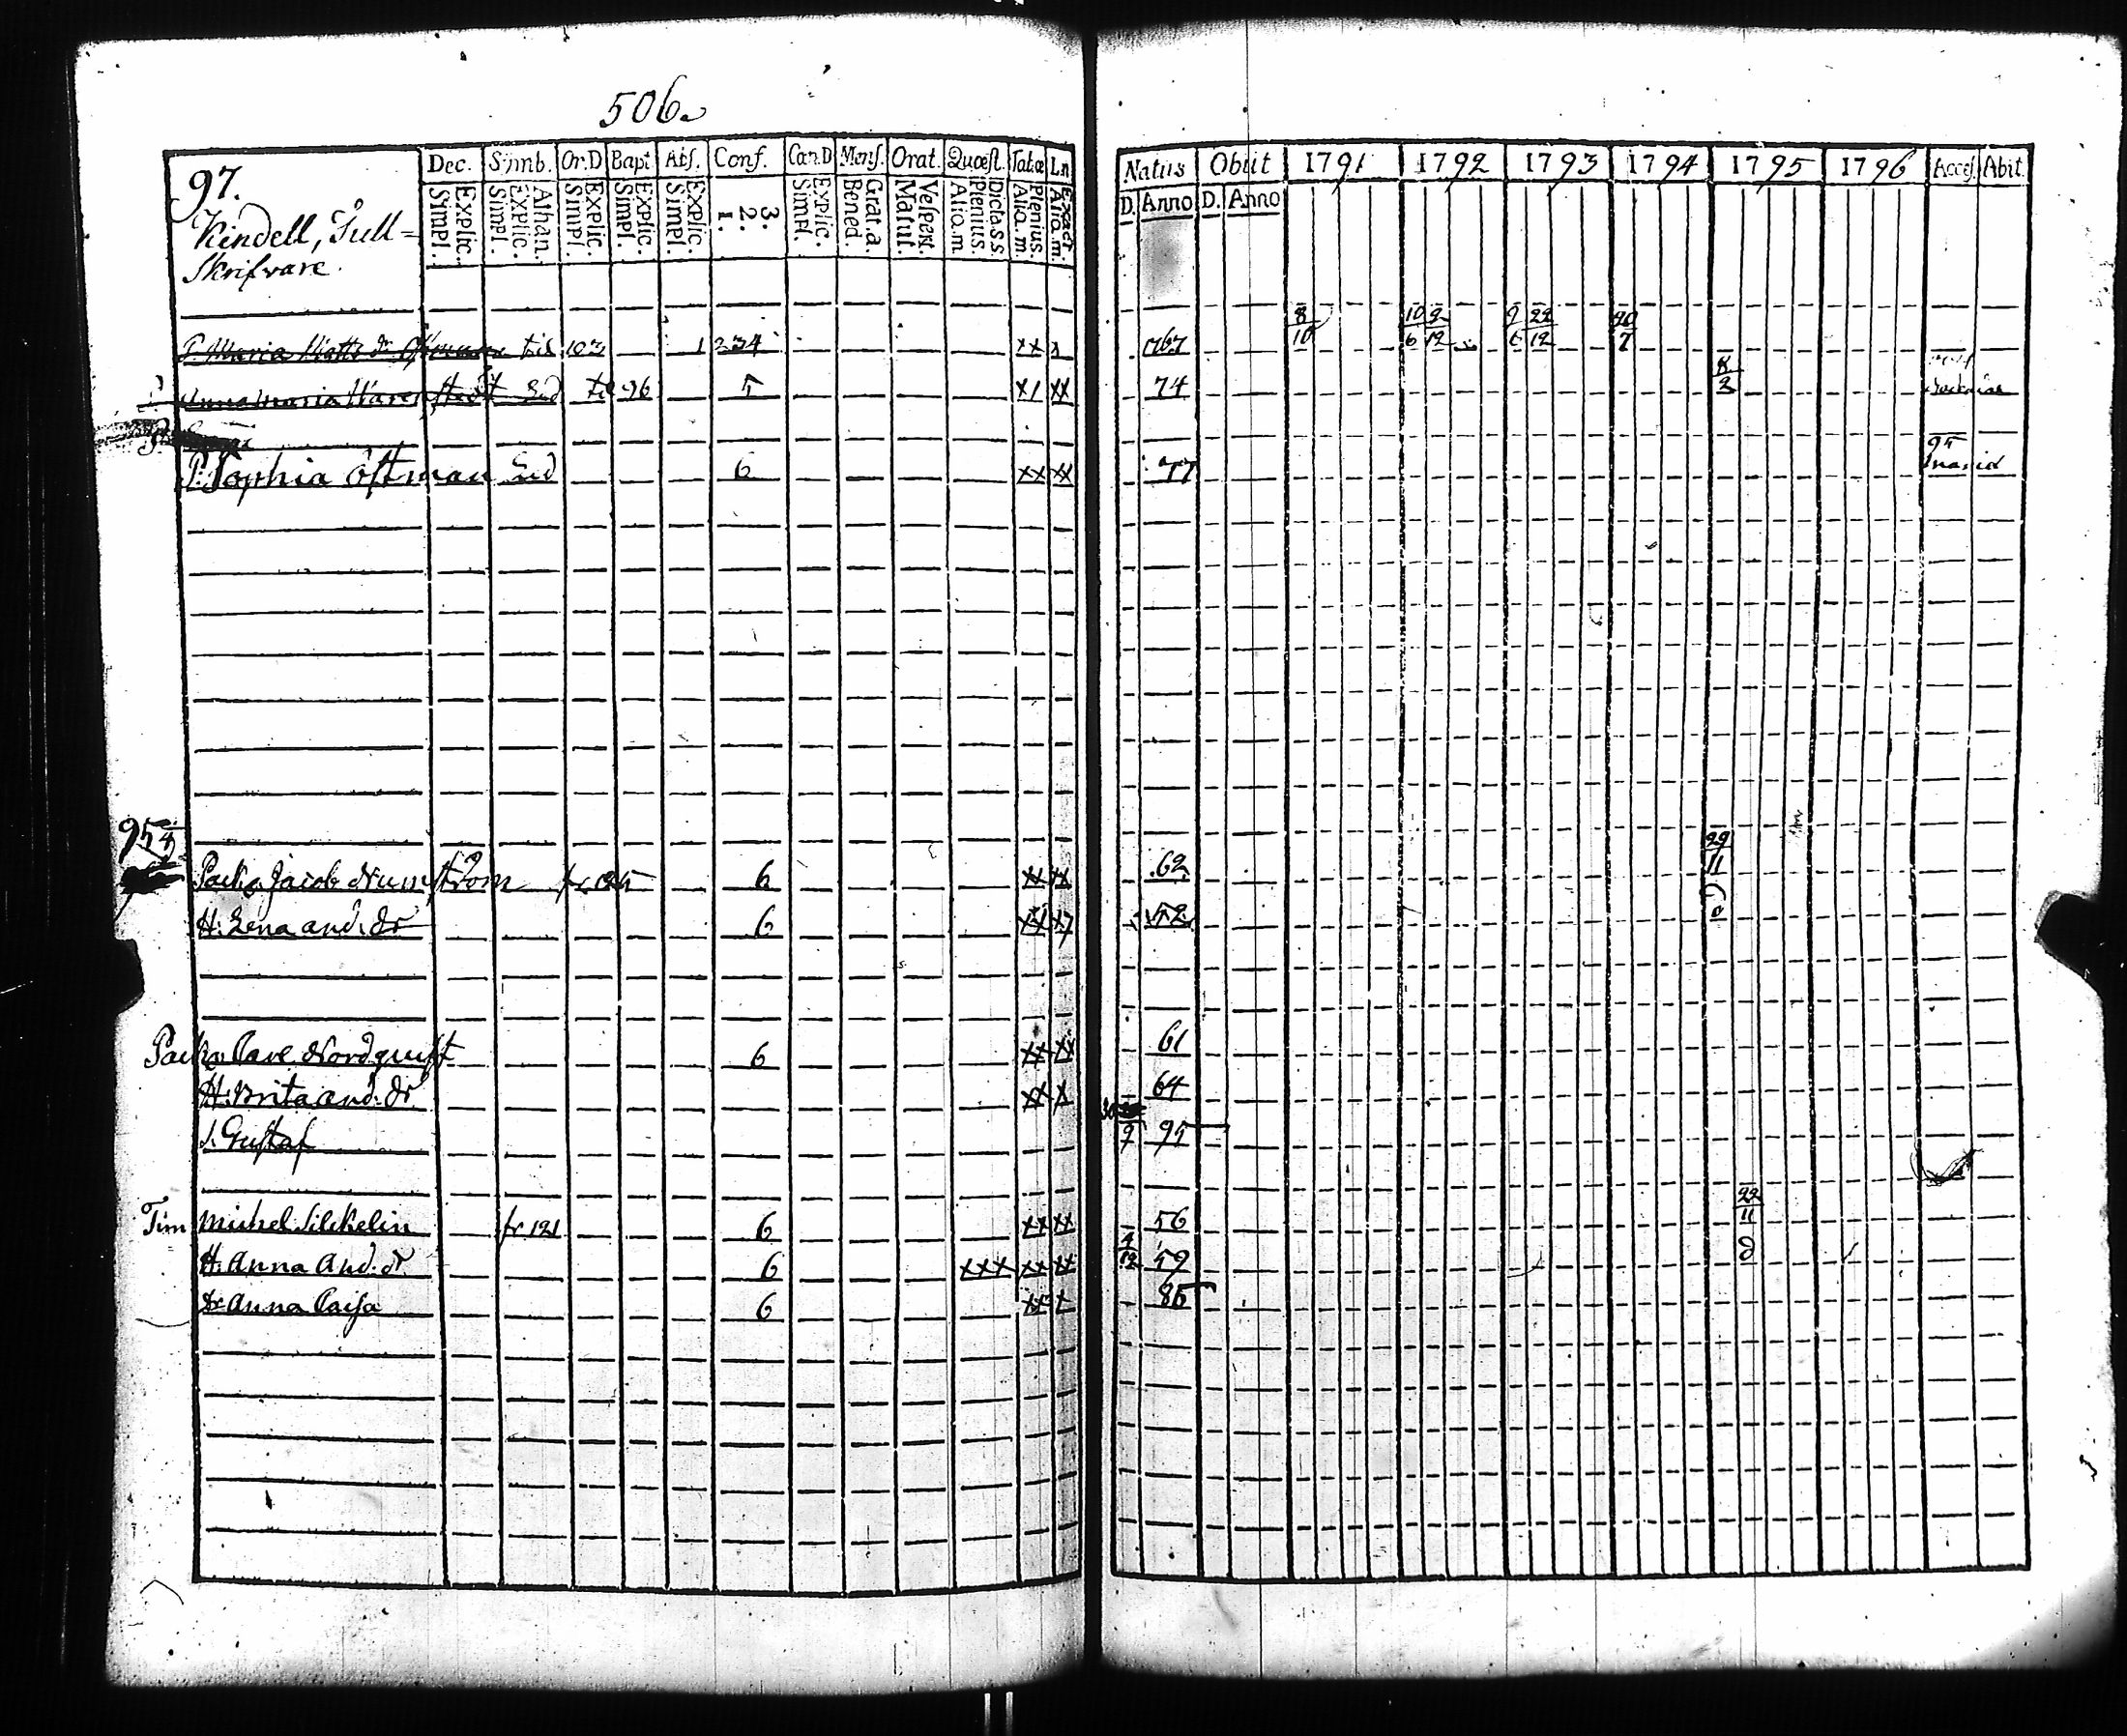 506.
97.
Kindell, Tull=
Skrifvare.
Dec. Sÿmb. Or.D Bapt Abs. Conf. Can.D Mens. Orat. Quæst. Tabæ Ln
Simpl. Explic. Simpl. Explic. Athan. Simpl. Explic. Simpl. Explic. Simpl. Explic. 1. 2. 3. Simpl. Explic. Bened. Grat.a. Matut. Vespert. Aliq.m Plenius. Dicta.s.s Aliq.m. Plenius. Aliq.m. Exact.
Natus Obiit 1791 1792 1793 1794 1795 1796 Acces. Abit.
D. Anno D. Anno
P. Maria Matts dr til 103 1 234 xx x 1767 8/10 10/6 2/12 9/6 22/12 20/7
Anna Maria Sud til 96 5 x1 xx 74 8/3
P. Sophia Östman Sud 6 xx xx 77 95
95
Jacob Numström 6 xx xx 62 29/11
H. Lena and. dr 6 52
Nordquist 6 xx xx 61
H. Brita and. dr xx x 64
S. Gustaf 9 95
Tim Michel Silckelin fr 121 6 xx xx 56 22/11
H. Anna And. dr 6 xxx xx xx 4/12 59
Dr Anna Caisa 6 85